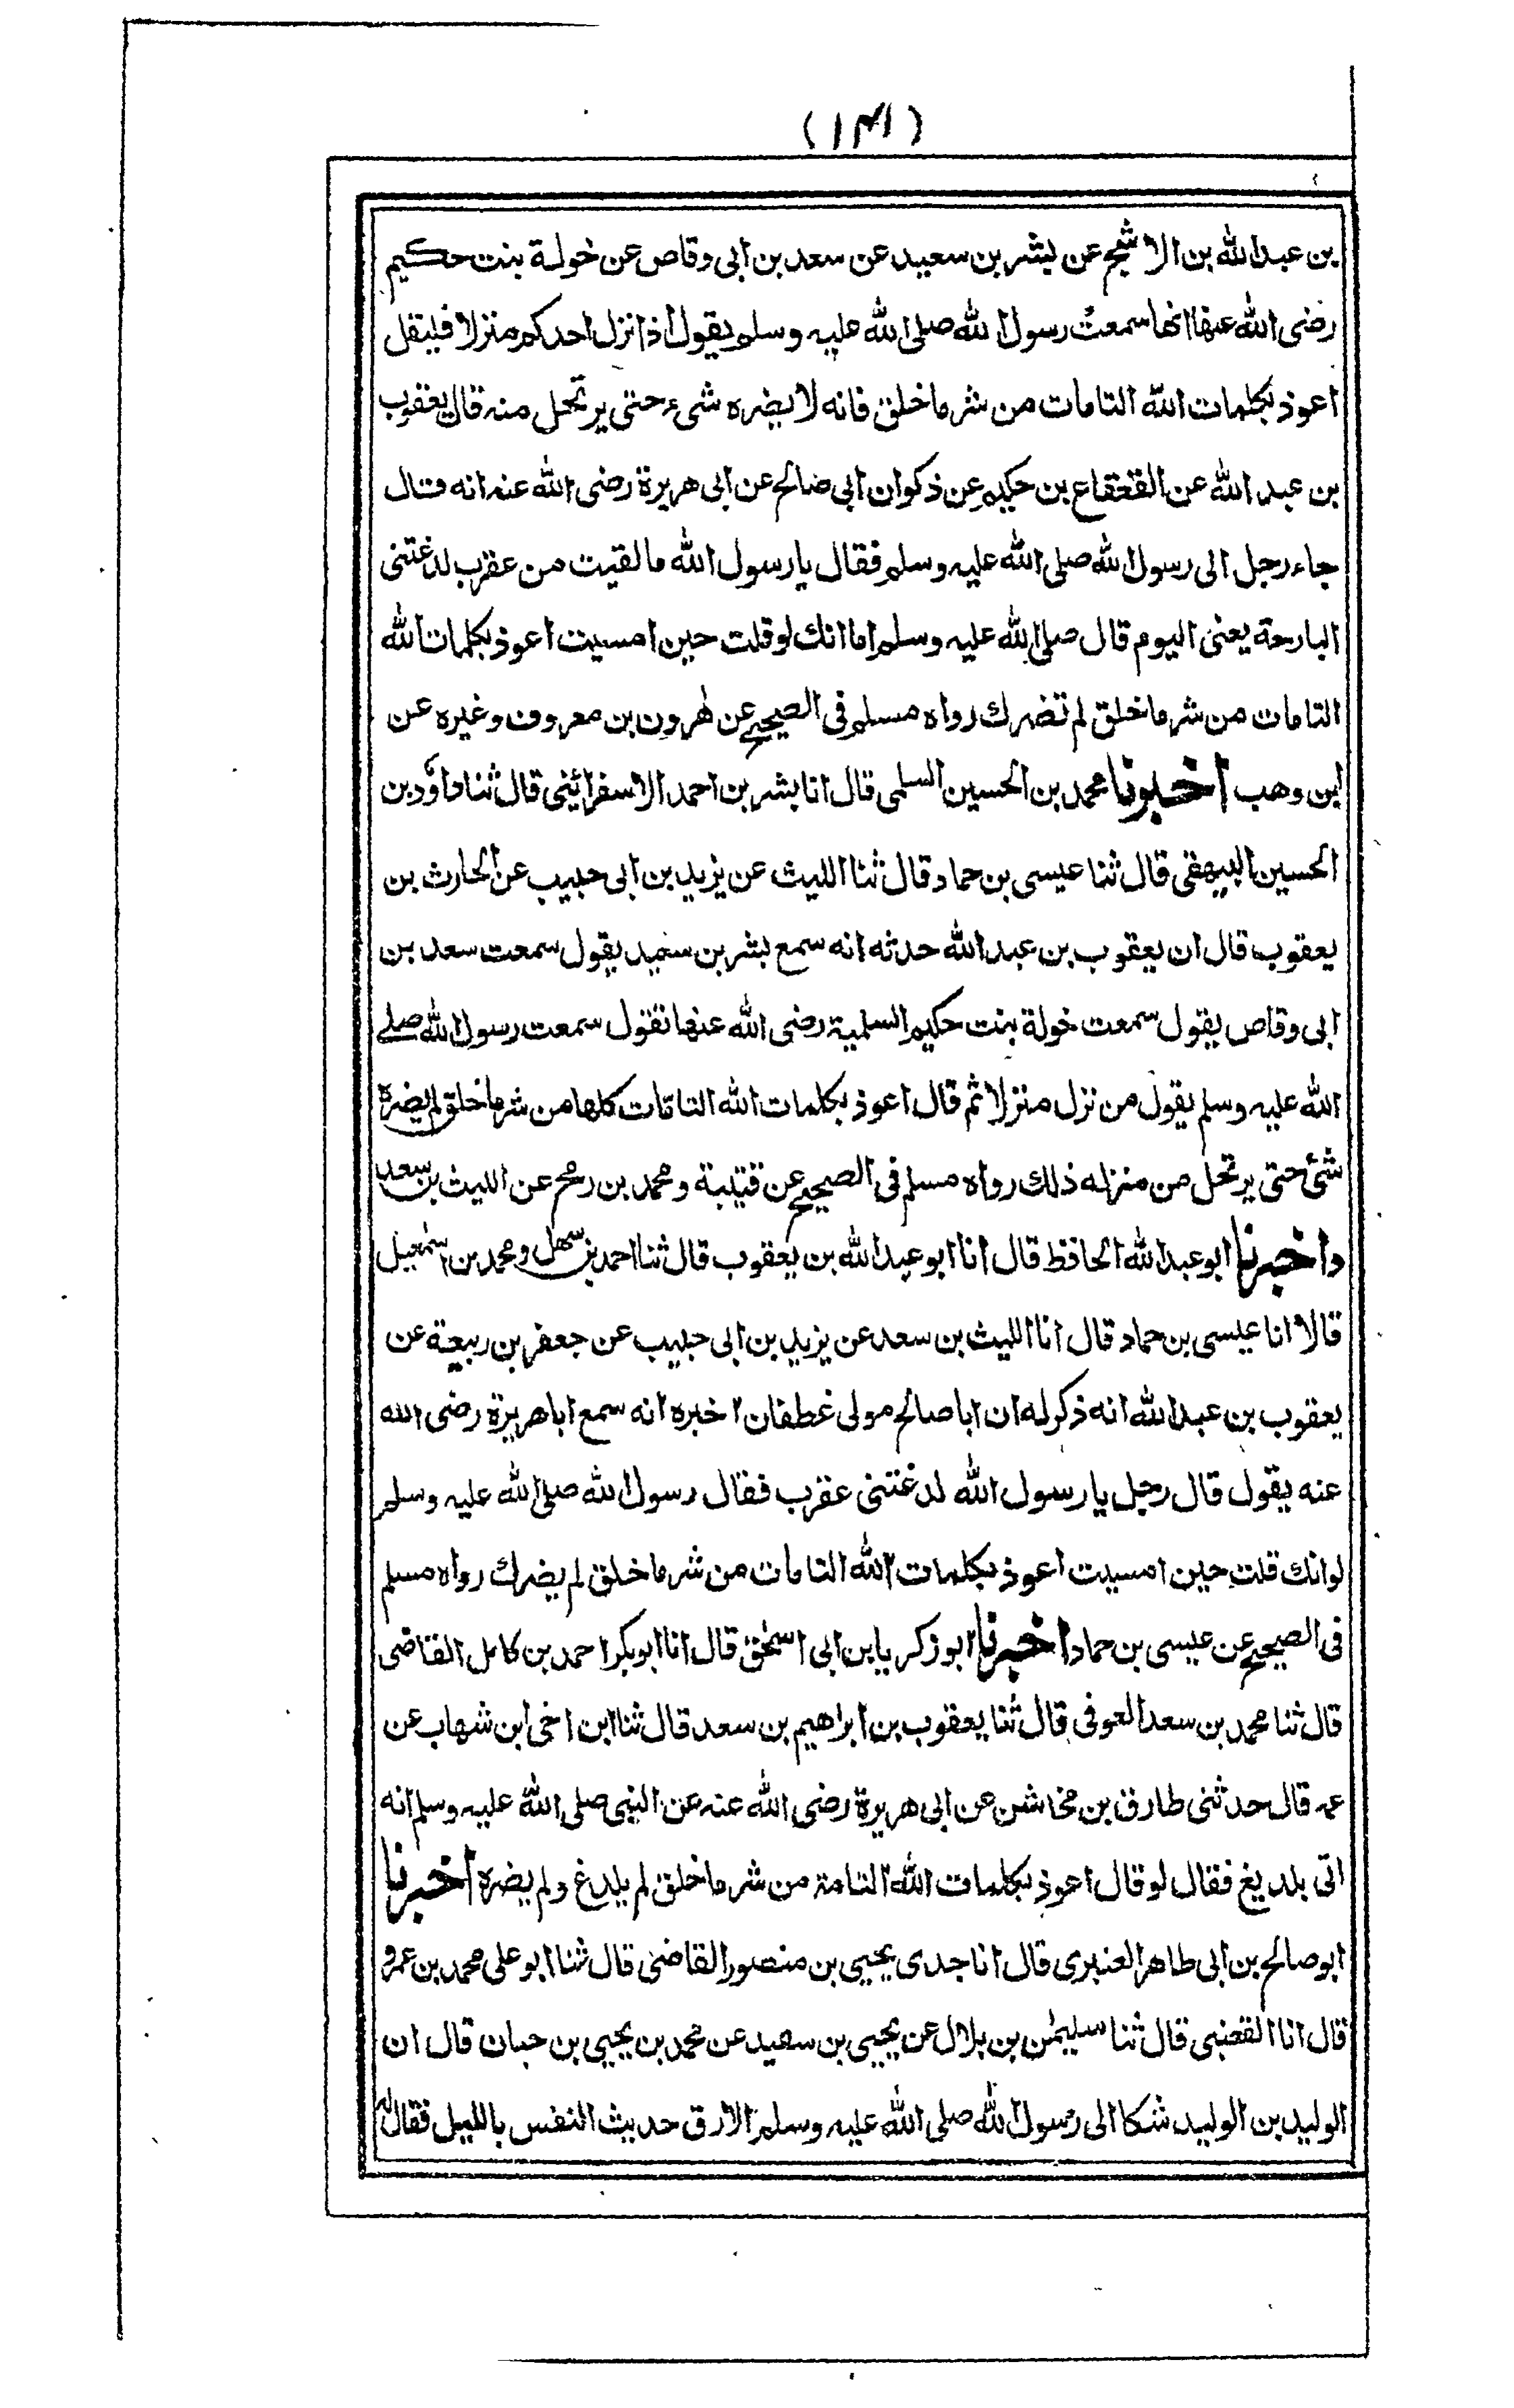 (١٣١)
بن عبدالله بن الاشج عن بشر بن سعيد عن سعد بن ابى وقاص عن خولة بنت حكيم
رضى الله عنها انها سمعت رسول الله صلى الله عليه وسلم يقول اذا نزل احدكم منزلا فليقل
اعوذ بكلمات الله التامات من شر ما خلق فانه لا يضره شىء حتى يرتحل منه قال يعقوب
بن عبد الله عن القعقاع بن حكيم عن ذكوان ابى صالح عن ابى هريرة رضى الله عنه انه قال
جاء رجل الى رسول الله صلى الله عليه وسلم فقال يا رسول الله ما لقيت من عقرب لدغتنى
البارحة يعنى اليوم قال صلى الله عليه وسلم اما انك لو قلت حين امسيت اعوذ بكلمات الله
التامات من شر ما خلق لم تضرك رواه مسلم فى الصحيح عن هٰرون بن معروف وغيره عن
ابن وهب اخبرنا محمد بن الحسين السلمى قال انا بشر بن احمد الاسفرائينى قال ثنا داؤد بن
الحسين البيهقى قال ثنا عيسى بن حماد قال ثنا الليث عن يزيد بن ابى حبيب عن الحارث بن
يعقوب قال ان يعقوب بن عبد الله حدثه انه سمع بشر بن سعيد يقول سمعت سعد بن
ابى وقاص يقول سمعت خولة بنت حكيم السلمية رضى الله عنها تقول سمعت رسول الله صلے
الله عليه وسلم يقول من نزل منزلا ثم قال اعوذ بكلمات الله التامّات كلها من شر ما خلق لم يضره
شئ حتى يرتحل من منزله ذلك رواه مسلم فى الصحيح عن قتيبة ومحمد بن رمح عن الليث بن سعد
واخبرنا ابو عبد الله الحافظ قال انا ابو عبد الله بن يعقوب قال ثنا احمد بن سهل ومحمد بن اسمٰعيل
قالا انا عيسى بن حماد قال انا الليث بن سعد عن يزيد بن ابى حبيب عن جعفر بن ربيعة عن
يعقوب بن عبد الله انه ذكر له ان ابا صالح مولى غطفان اخبره انه سمع ابا هريرة رضى الله
عنه يقول قال رجل يا رسول الله لدغتنى عقرب فقال رسول الله صلى الله عليه وسلم
لو انك قلت حين امسيت اعوذ بكلمات الله التامات من شر ما خلق لم يضرك رواه مسلم
فى الصحيح عن عيسى بن حماد اخبرنا ابو زكريا بن ابى اسحٰق قال انا ابو بكر احمد بن كامل القاضى
قال ثنا محمد بن سعد العوفى قال ثنا يعقوب بن ابراهيم بن سعد قال ثنا ابن اخى ابن شهاب عن
عمه قال حدثنى طارق بن مخاشن عن ابى هريرة رضى الله عنه عن النبى صلى الله عليه وسلم انه
اتى بلديغ فقال لو قال اعوذ بكلمات الله التامة من شر ما خلق لم يلدغ ولم يضره اخبرنا
ابو صالح بن ابى طاهر العنبرى قال انا جدى يحيى بن منصور القاضى قال ثنا ابو على محمد بن عمرو
قال انا القعنبى قال ثنا سليمٰن بن بلال عن يحيى بن سعيد عن محمد بن يحيى بن حبان قال ان
الوليد بن الوليد شكا الى رسول الله صلى الله عليه وسلم الارق حديث النفس بالليل فقال له